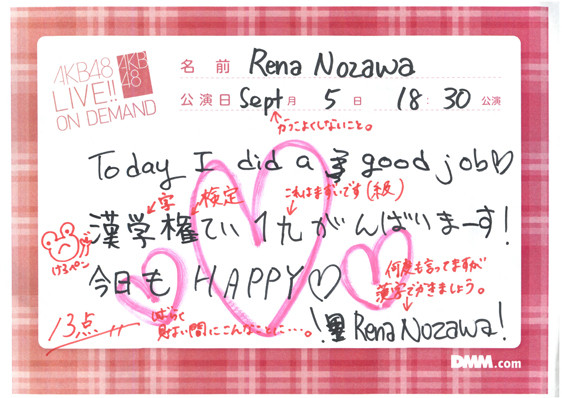 AKB48 LIVE!! ON DEMAND
AKB48
名前 Rena Nozawa
公演日 Sept 月 5 日 18:30 公演
かっこよくしないこと。
Today I did a good job♡
字 検定 これはまずいです(級)
漢学権てい1九がんばいまーす!
けろペン
今日も HAPPY♡
何度も言ってますが
漢字でかきましょう。
13点
しばらく
見ない間にこんなことに…。
Rena Nozawa!
DMM.com